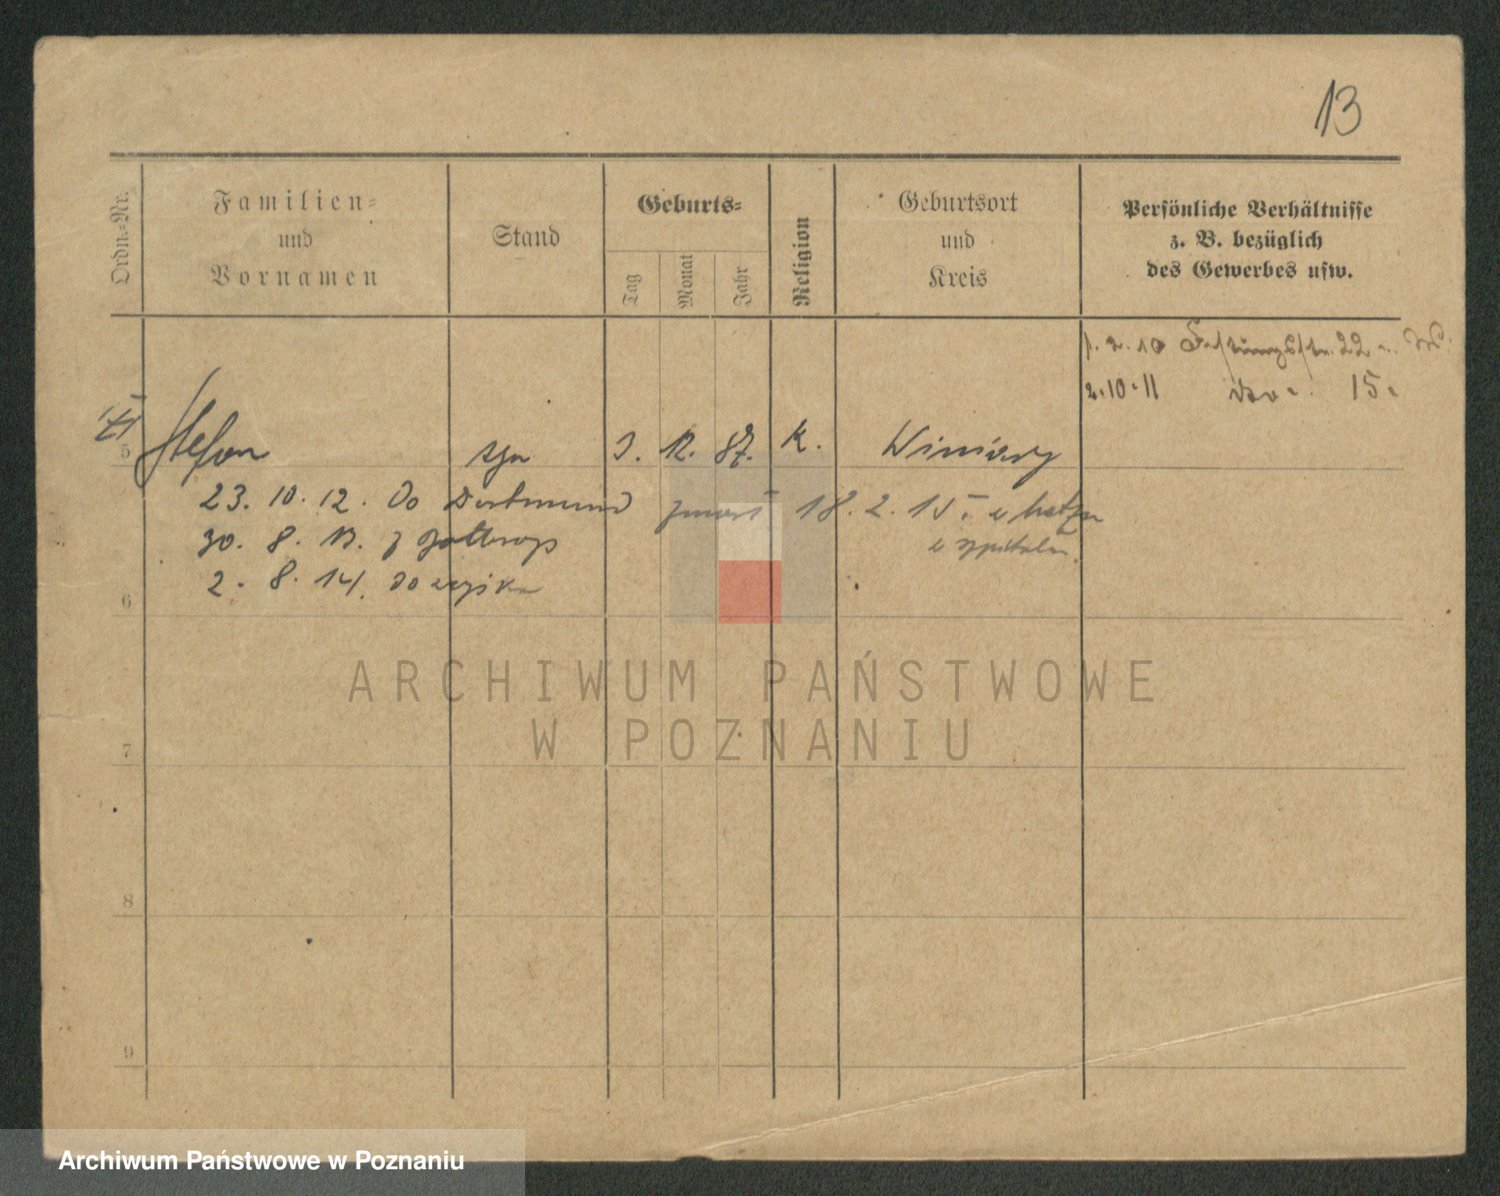 13
Ordn.-Nr.
Familien-
und
Vornamen
Stand
Geburts-
Tag
Monat
Jahr
Religion
Geburtsort
und
Kreis
Persönliche Verhältnisse
z. B. bezüglich
des Gewerbes usw.
1. 2. 10 Festungsstr. 22
2. 10. 11 15.
5
Stefan syn 3. 12. 87. K. Winiary
23. 10. 12. do Dortmund zmarł 18. 2. 15. w
30. 8. 13. z Bottrop w szpitalu
2. 8. 14. do wojska
6
7
8
9
ARCHIWUM PAŃSTWOWE
W POZNANIU
Archiwum Państwowe w Poznaniu